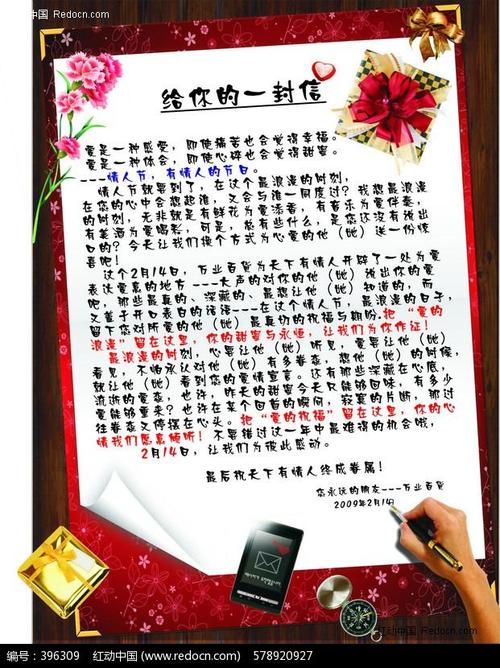 红动中国 Redocn.com
给你的一封信
爱是一种感受，即使痛苦也会觉得幸福。
爱是一种体会，即使心碎也会觉得甜蜜。
----情人节，有情人的节日。
情人节就要到了，在这个最浪漫的时刻，
在您的心中会想起谁，又会与谁一同度过？我想最浪漫
的时刻，无非就是有鲜花为爱添香，有音乐为爱伴奏，
有美酒为爱喝彩，可是，您有些什么，是您还没有说出
口的？今天让我们换个方式为心爱的他（她）送一份惊
喜吧！
这个2月14日，万业百货为天下有情人开辟了一处为爱
表达爱意的地方----大声的对你的他（她）说出你的爱
吧，那些最真的、深藏的、最想让他（她）知道的，而
又羞于开口表白的话语----在这个情人节，最浪漫的日子，
留下您对所爱的他（她）最真切的祝福与期盼，把“爱的
浪漫”留在这里，你的甜蜜与永恒，让我们为你作证！
最浪漫的时刻，心要让他（她）听见，爱要让他（她）
看见，不怕承认对他（她）有多眷恋，想他（她）的时候，
就让他（她）看到您的爱情宣言。还有那些深藏在心底，
流逝的爱恋，也许，昨天的甜蜜今天只能够回味，有多少
爱能够重来？也许在某个回首的瞬间，寂寞的片断，那过
往眷恋又停摆在心头。把“爱的祝福”留在这里，你的心
情我们愿意倾听！不要错过这一年中最难得的机会哦，
2月14日，让我们为彼此感动。
最后祝天下有情人终成眷属！
您永远的朋友----万业百货
2009年2月14日
编号：396309 红动中国（www.redocn.com） 578920927